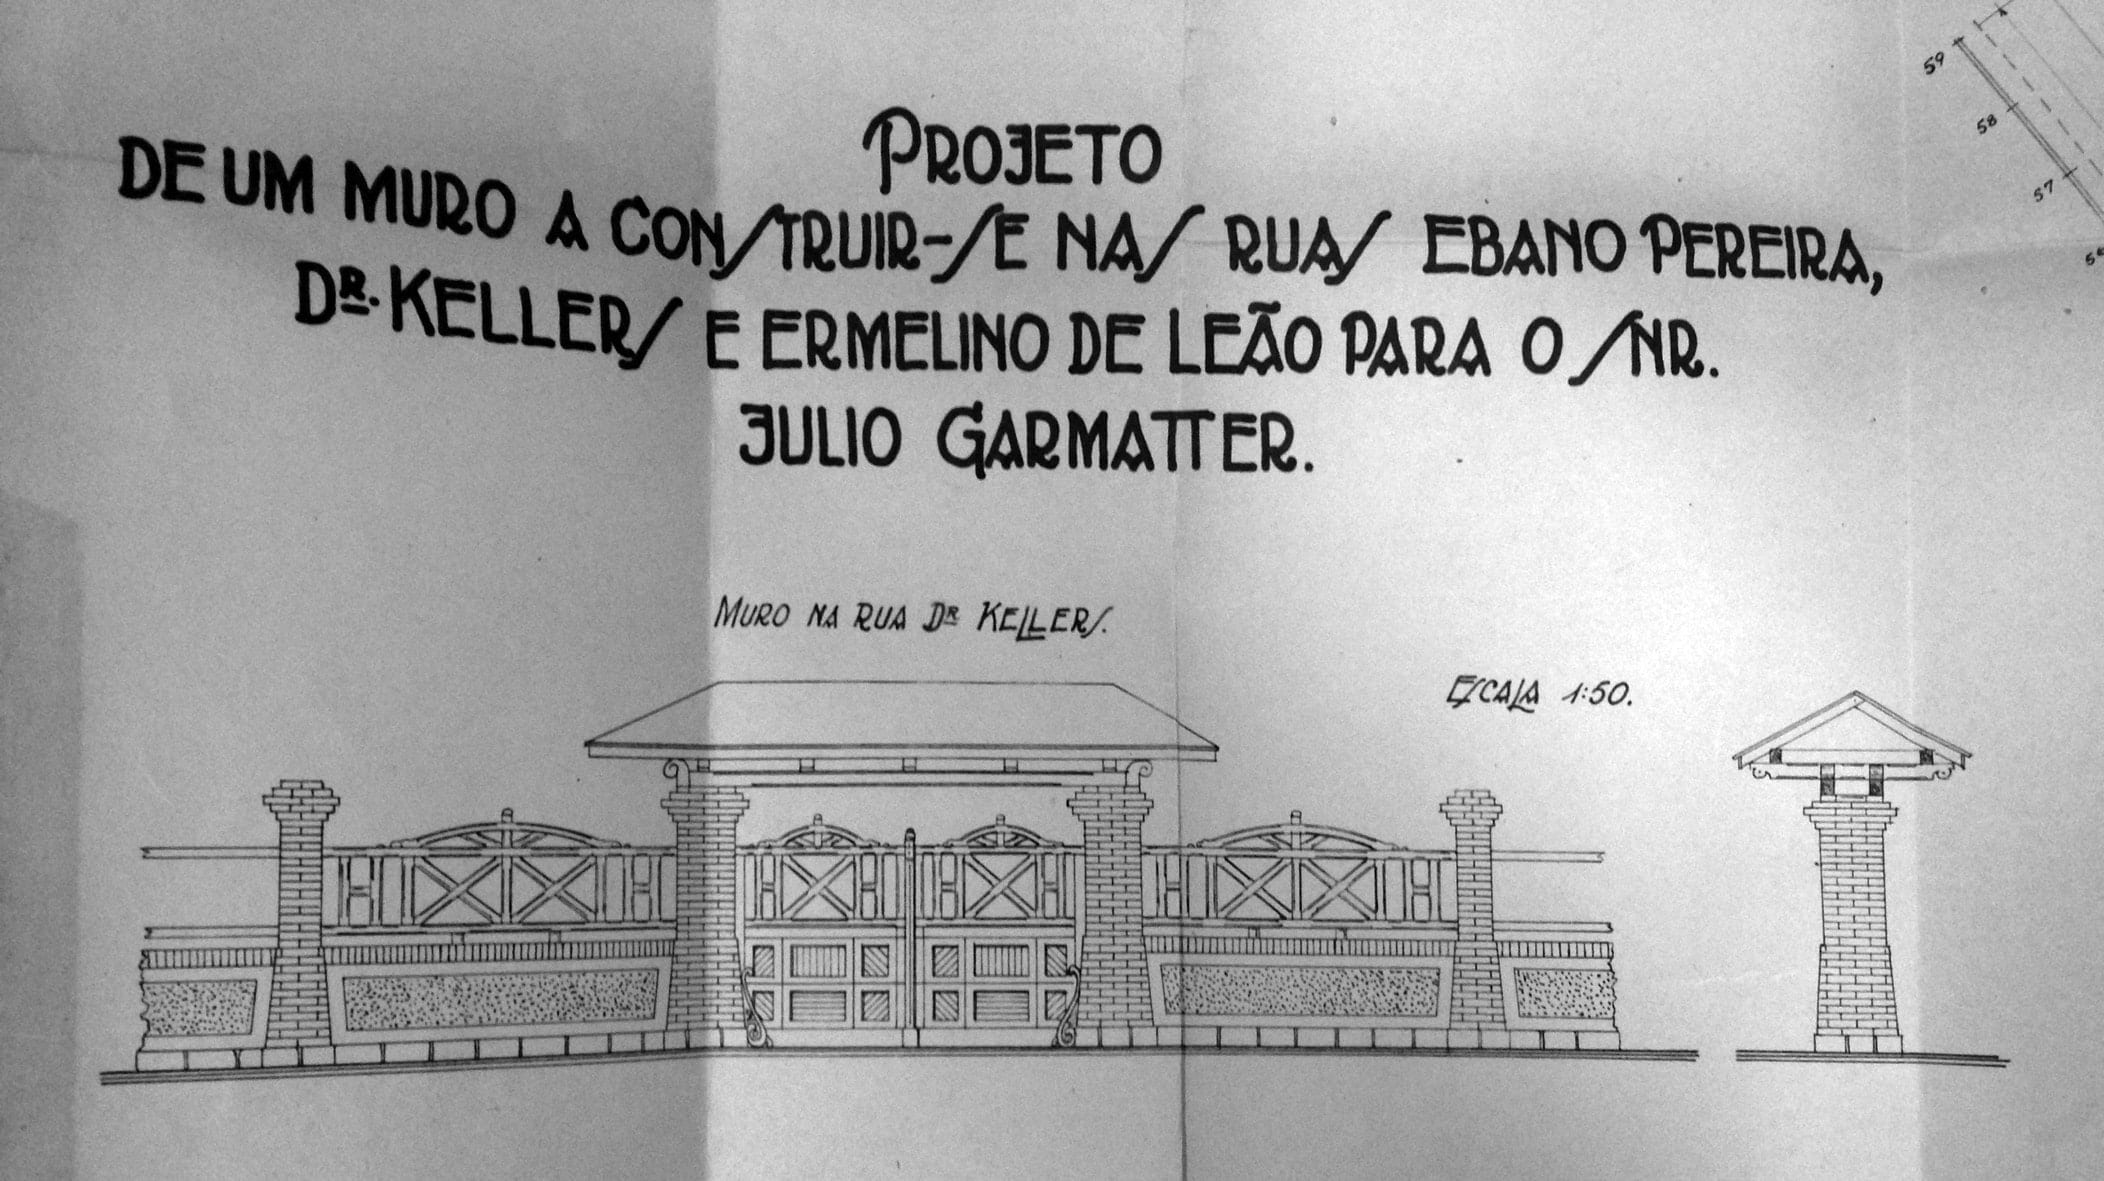 PROJETO
DE UM MURO A CONSTRUIR-SE NAS RUAS EBANO PEREIRA,
DR. KELLERS E ERMELINO DE LEÃO PARA O SNR.
JULIO GARMATTER.
MURO NA RUA DR KELLERS.
ESCALA 1:50.
59
58
57